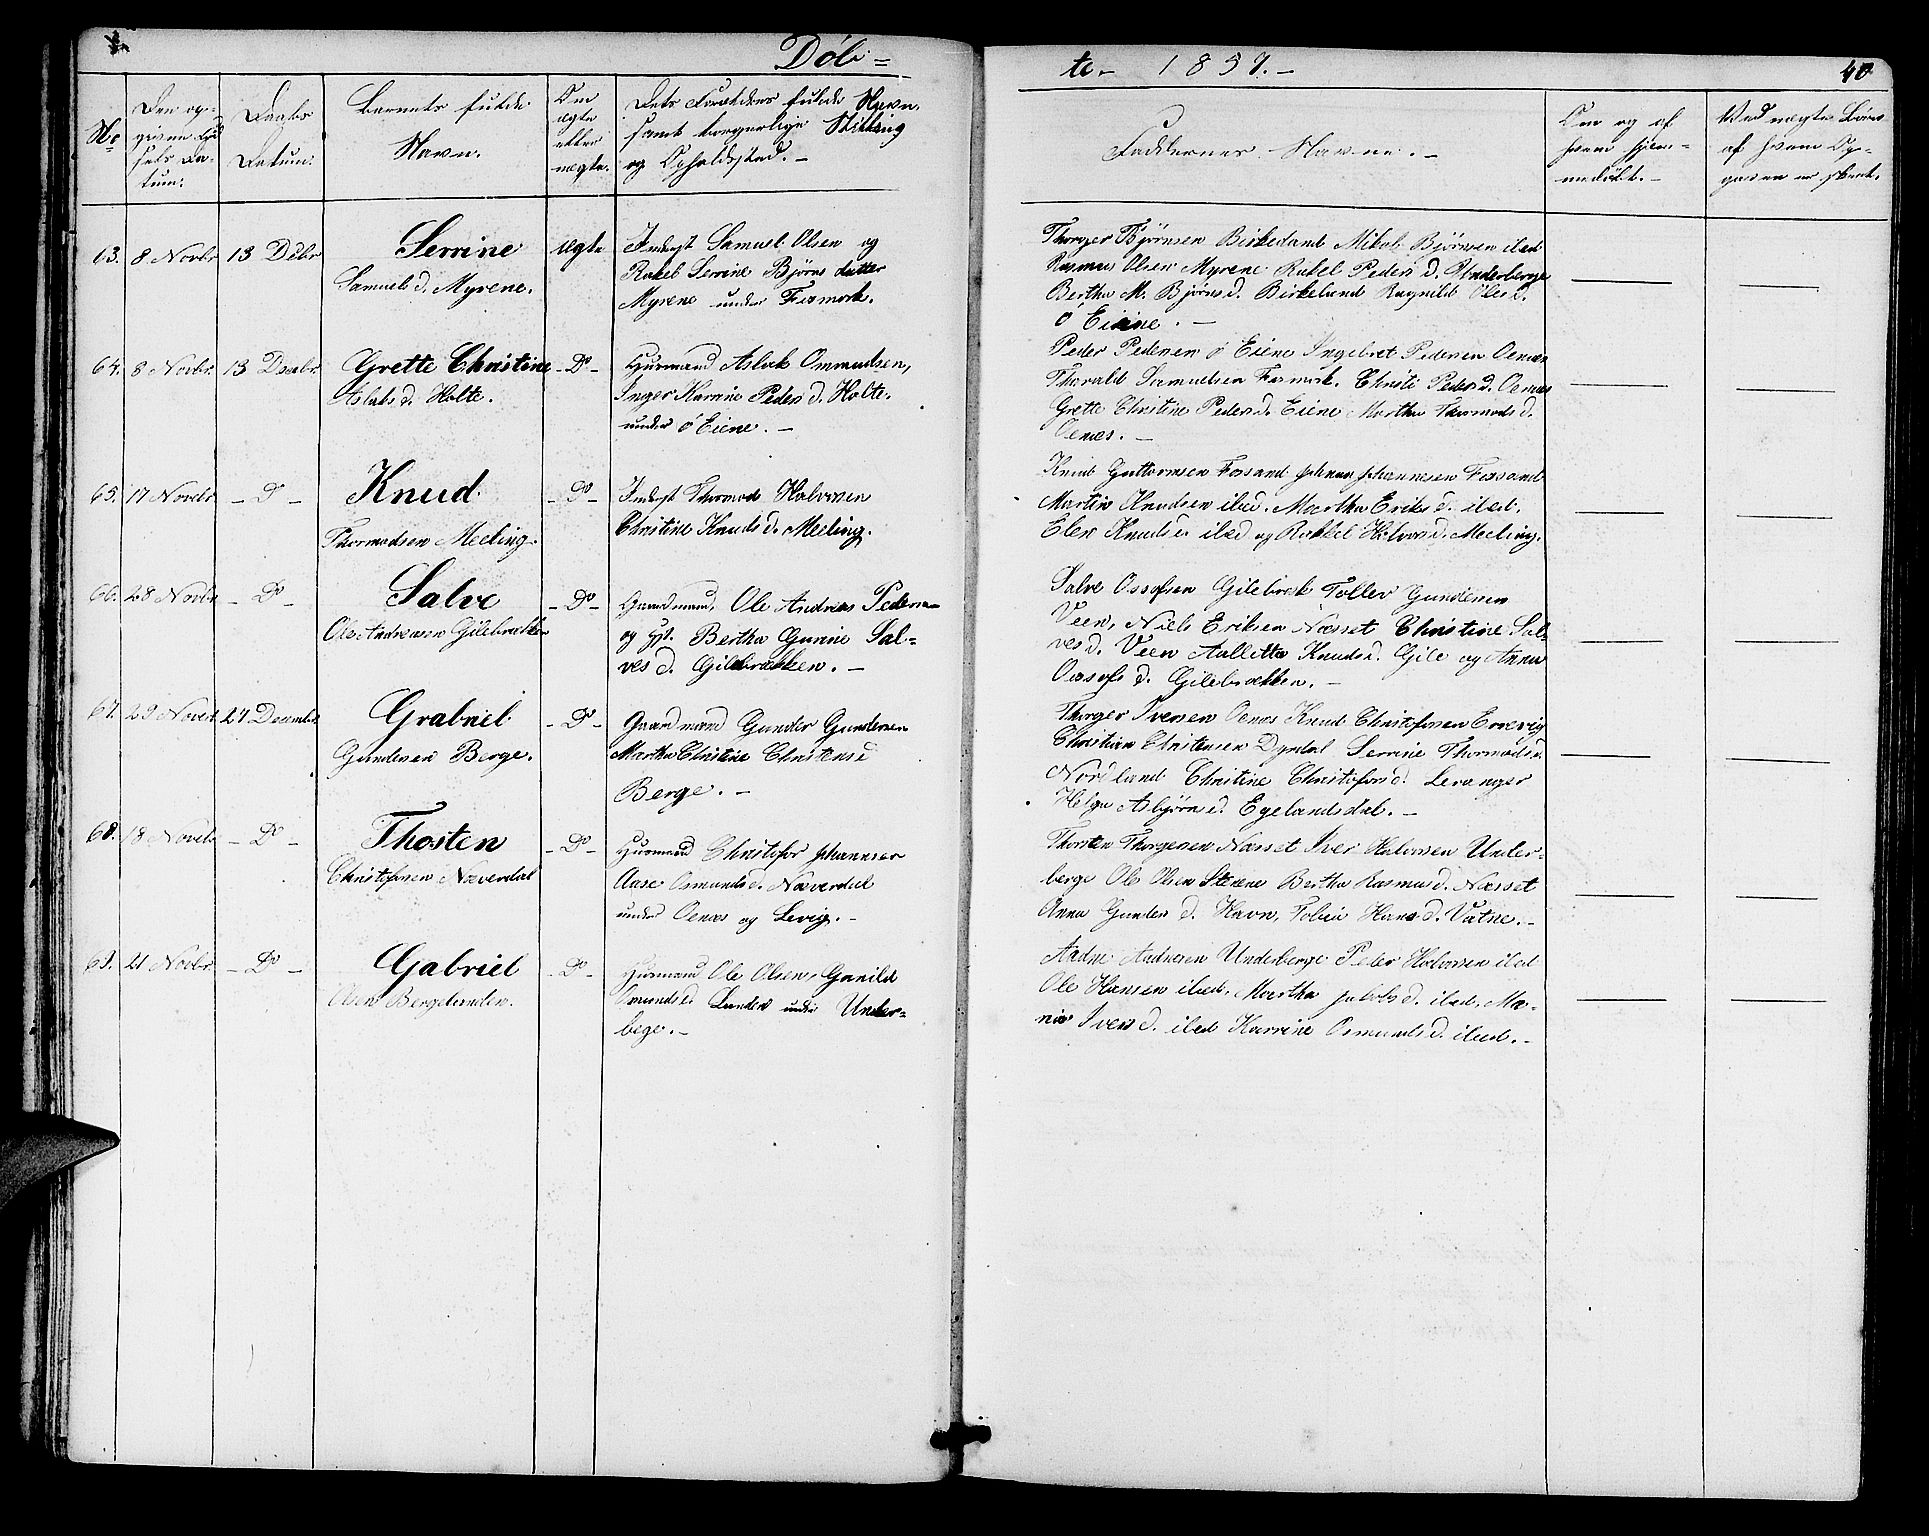 Döb=
te. 1857.
40
No
Den op-
givne Föd
sels Da-
tum.
Daabs
Datum.
Barnets fulde
Navn.
Om
ægte
eller
uægte.
Dets Forældres fulde Navn,
samt borgerlige Stilling
og Opholdssted.
Faddernes Navne.
Om og af
hvem hjem-
medöbt.
Ved uægte Börn
af hvem Op-
gaven er skeet.
63. 8 Novbr 13 Debr
Serrine
Samuels d. Myrene.
ægte
Inderst Samuel Olsen og
Rakel Serrine Björns datter
Myrene under Fosmork.
Thorger Björnsen Birkeland Mikal Björnsen ibed
Rasmus Olsen Myrene Rakel Peders d. Underberge
Bertha M. Björns d. Birkeland Ragnild Oles d.
ö Eiene.
64. 8 Novbr. 13 Decbr.
Grette Christine
Aslaks d. Holte.
Do
Husmand Aslak Ommudsen,
Inger Karrine Peders d. Holte.
under ö Eiene.
Peder Pedersen ö Eiene Ingebret Pedersen Oenæs
Thorald Samuelsen Fosmork. Christi Peders d. Oenæs
Grette Christine Peders d. Eiene Martha Thormods d.
Oenes.
65. 17 Novbr. Do
Knud
Thormodsen Meeling.
Do
Inderst Thormod Halvorsen
Christine Knuds d. Meeling.
Knud Guttormsen Fossand Johannes Johannesen Fossand
Martin Knudsen ibed. Martha Eriks d. ibed.
Elen Knuds d. ibed og Rakkel Halvors d. Meeling.
66. 28 Novbr Do
Salve
Ole Andreasen Gilebrækken
Do
Gaardmand, Ole Andreas Pedersen
og Hst. Bertha Gurine Sal=
ves d. Gilebrækken.
Salve Ossofsen Gilebræk Tollev Gundersen
Veen, Niels Eriksen Næsset Christine Sal-
ves d. Veen Aallette Knuds d. Gile og Anna
Ossofs d. Gilebrækken.
67. 29 Novbr 27 December
Grabriel
Gundersen Berge.
Do
Gaardmand Gunder Gundersen
Martha Christine Christens d
Berge.
Thorger Iversen Oenæs Knud Christofersen Errevig
Christian Christensen Dyrdal Serrine Thormods d.
Nordland Christine Christofers d. Levanger
Helga Asbjörns d. Egelandsdal.
68. 18 Novbr Do
Thosten
Christofersen Næverdal
Do
Husmand Christofer Johannesen
Aase Osmunds d. Næverdal
under Oenæs og Levig.
Thorsten Thorgersen Næsset Iver Halvorsen Under-
berge Ole Olsen Stenene Bertha Rasmus d. Næsset
Anna Gunders d. Havn, Tobia Hans d. Vatne.
69. 21 Novbr. Do
Gabriel
Olsen Bergelanden.
Do
Husmand Ole Olsen, Gunild
Osmunds d Landen under Under=
bege.
Aadne Aadnesen Underberge Peder Halvorsen ibed
Ole Hansen ibed. Martha Jakobs d. ibed. Ma-
ria Ivers d. ibed Karrine Osmunds d. ibed.